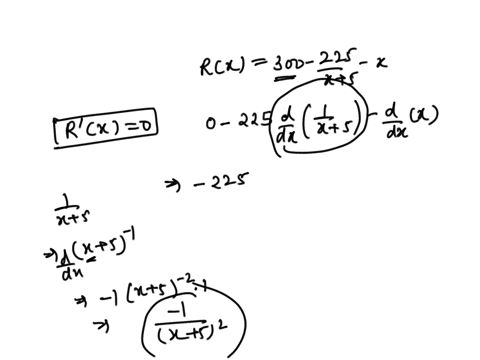 R(x) = 300 - 225/(x+5) - x
R'(x) = 0
0 - 225 d/dx (1/(x+5)) - d/dx (x)
⇒ - 225
1/(x+5)
⇒ d/dx (x+5)^-1
⇒ -1 (x+5)^-2 . 1
⇒ -1/(x+5)^2